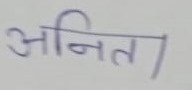 अनिता